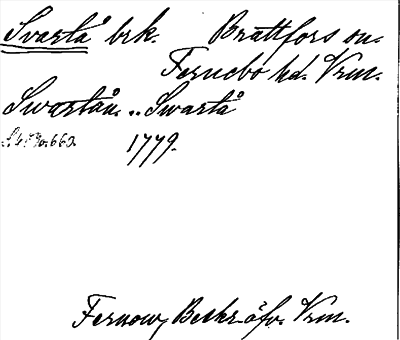 Svartå brk. Brattfors sn.
Fernebo hd. Vrm.
Swartån. „ Swartå
1779.
Fernow, Beskr. öfv. Vrm.